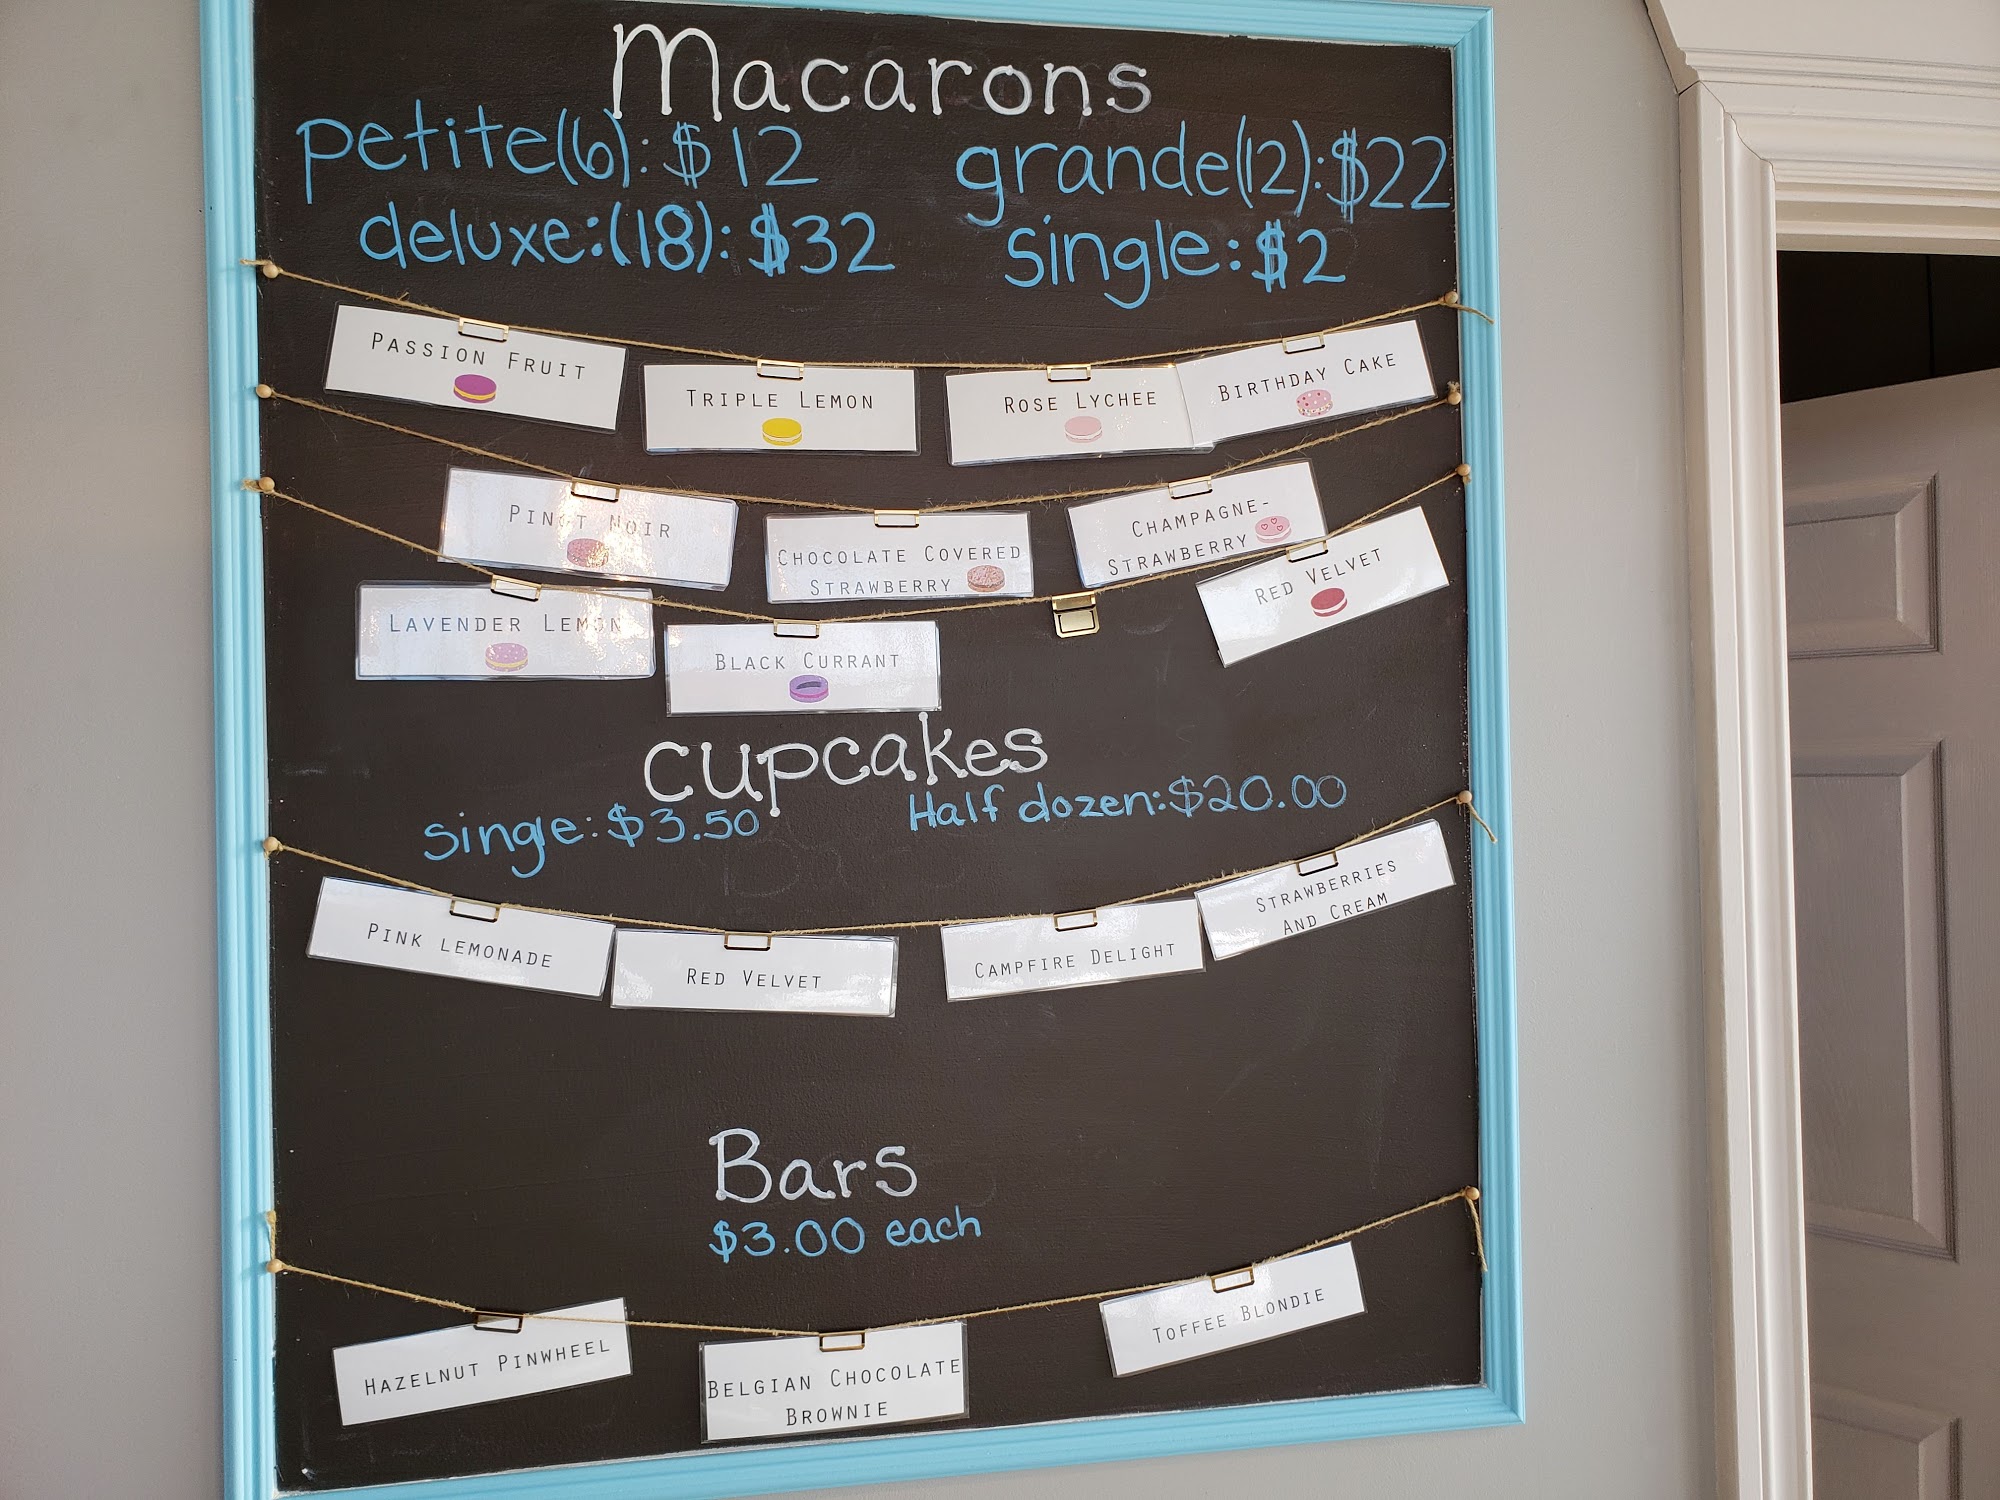 Macarons
petite(6): $12 grande(12): $22
deluxe:(18): $32 single: $2
PASSION FRUIT
TRIPLE LEMON
ROSE LYCHEE
BIRTHDAY CAKE
PINOT NOIR
CHOCOLATE COVERED
STRAWBERRY
CHAMPAGNE-
STRAWBERRY
LAVENDER LEMON
BLACK CURRANT
RED VELVET
cupcakes
singe: $3.50 Half dozen: $20.00
PINK LEMONADE
RED VELVET
CAMPFIRE DELIGHT
STRAWBERRIES
AND CREAM
Bars
$3.00 each
HAZELNUT PINWHEEL
BELGIAN CHOCOLATE
BROWNIE
TOFFEE BLONDIE